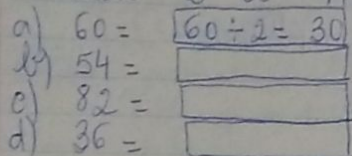 a) 60 = 60 ÷ 2 = 30
b) 54 =
c) 82 =
d) 36 =